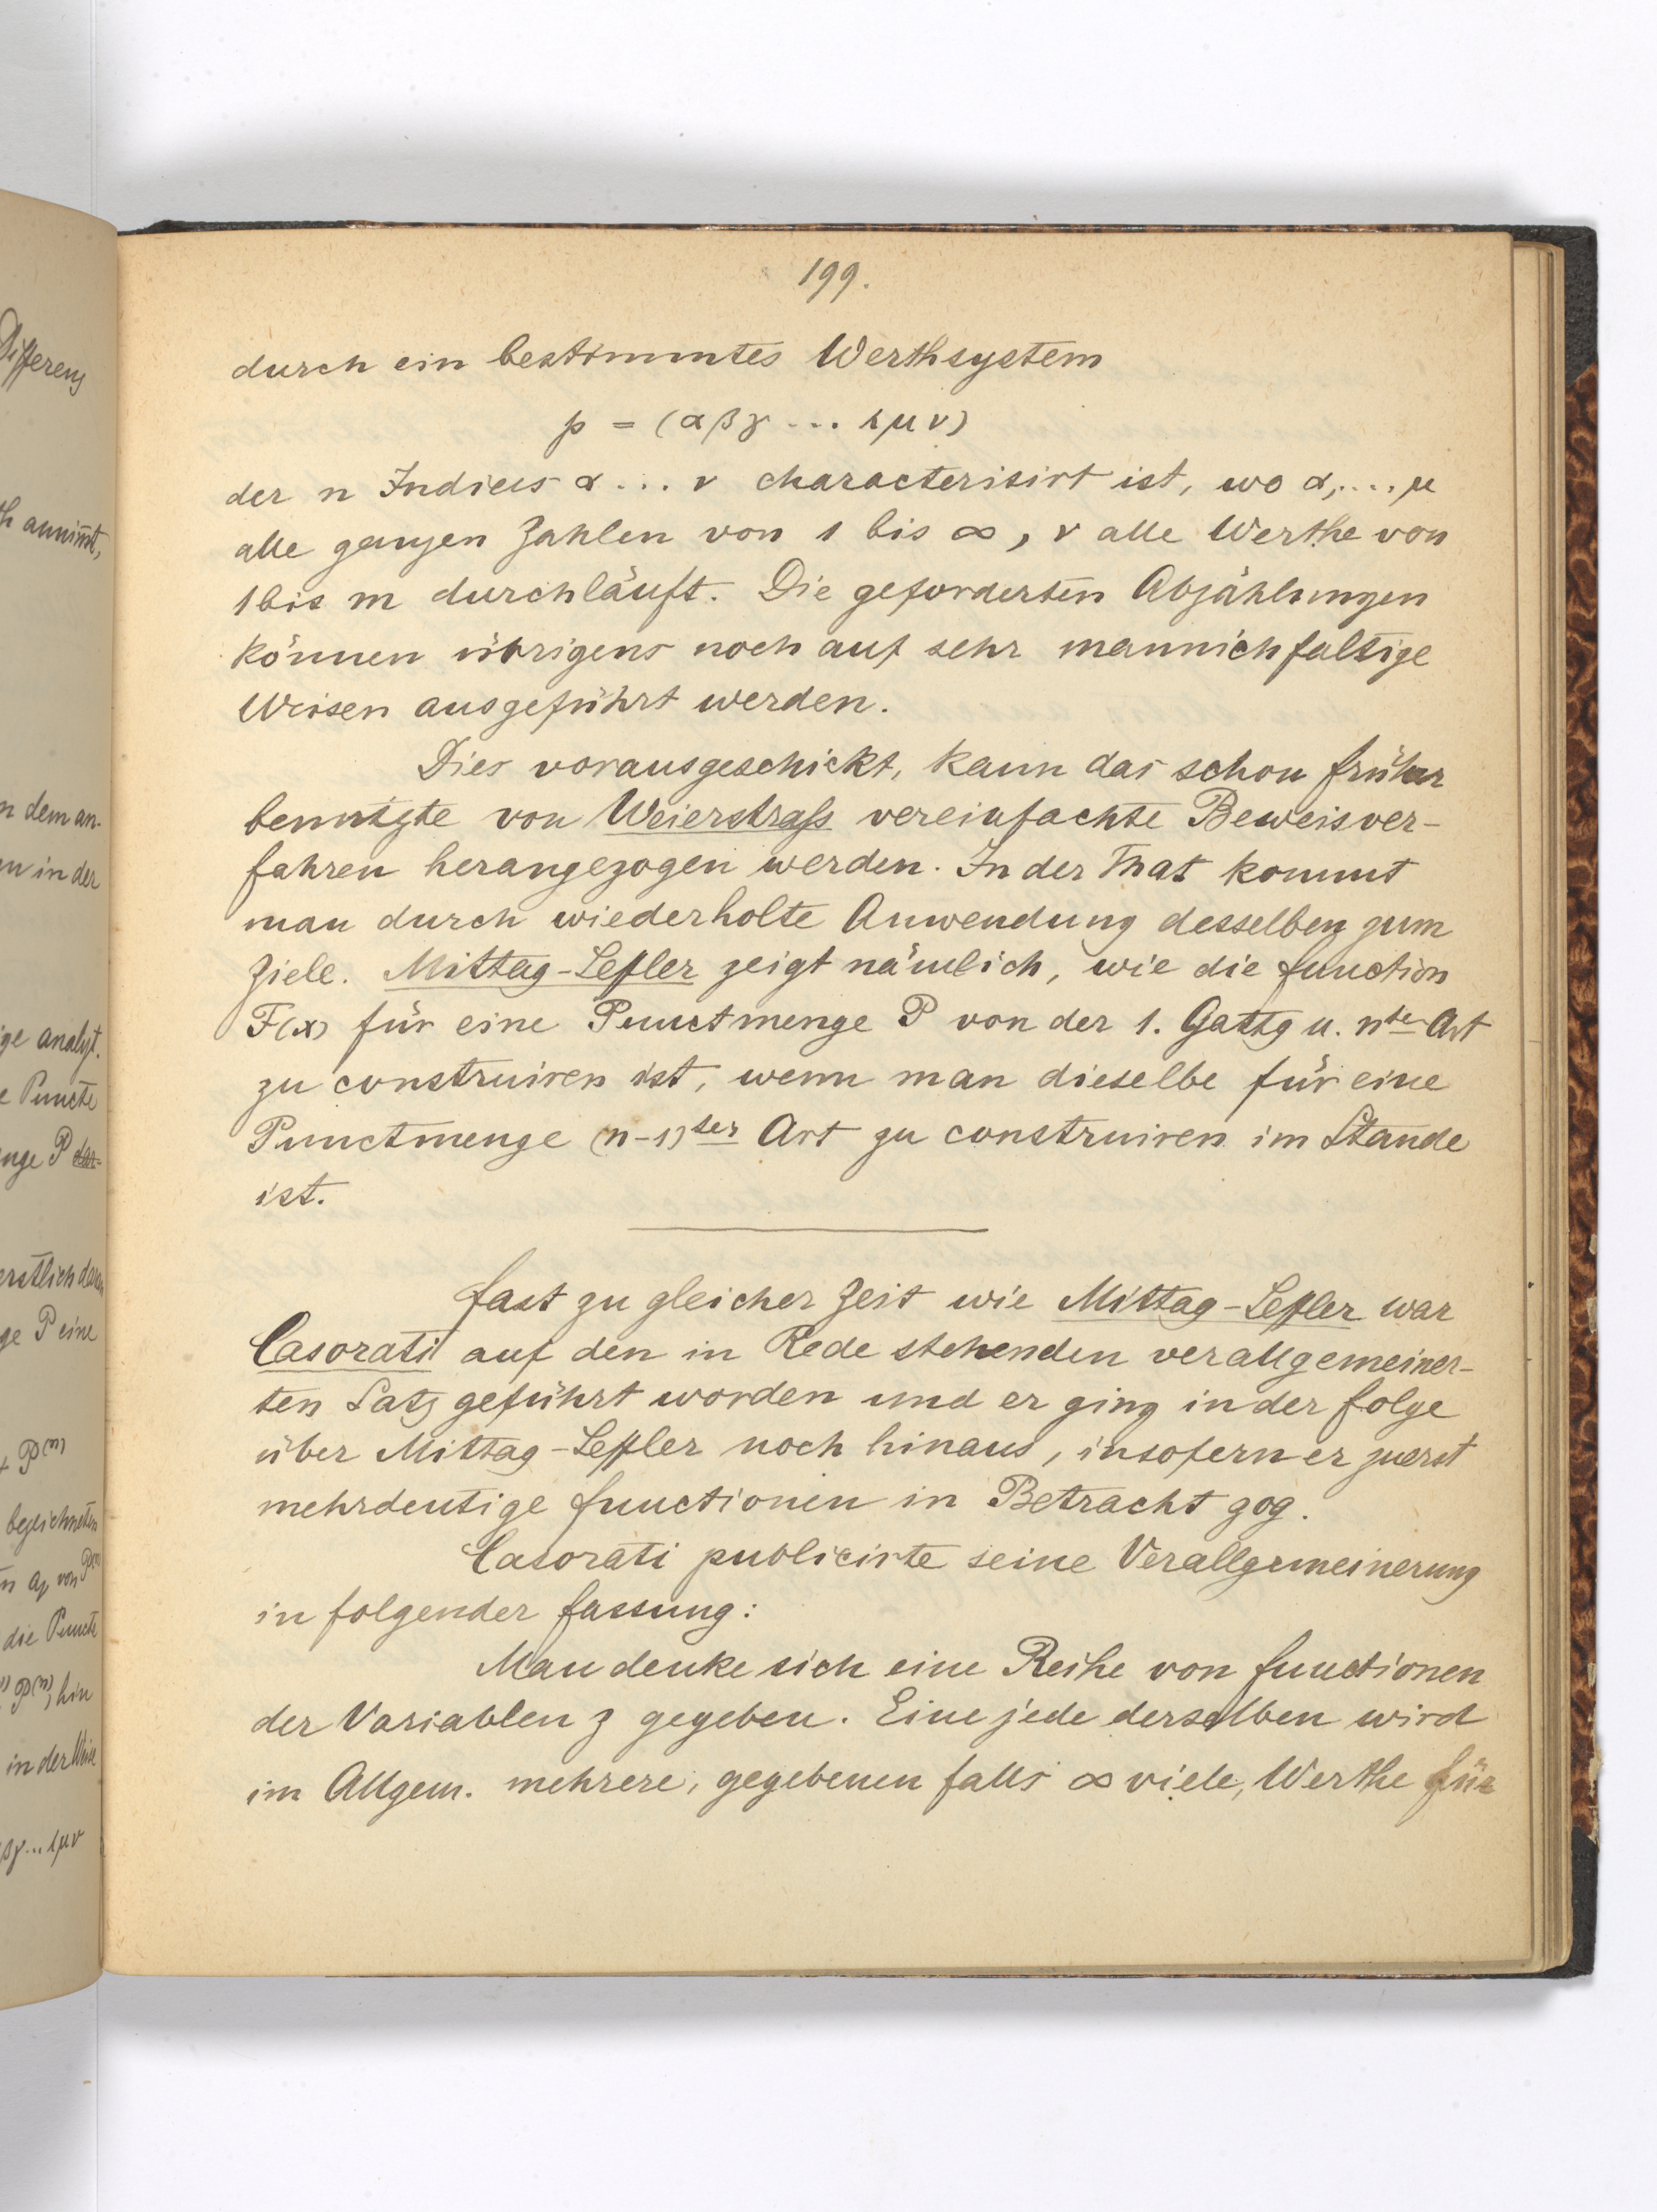 199.
durch ein bestimmtes Werthsystem
p = (αβγ ... λμν)
der n Indices α ... ν characterisirt ist, wo α, .... μ
alle ganzen Zahlen von 1 bis ∞, ν alle Werthe von
1 bis m durchläuft. Die geforderten Abzählungen
können übrigens noch auf sehr mannichfaltige
Weisen ausgeführt werden.
Dies vorausgeschickt, kann das schon früher
benutzte von Weierstraß vereinfachte Beweisver-
fahren herangezogen werden. In der That kommt
man durch wiederholte Anwendung desselben zum
Ziele. Mittag-Leffler zeigt nämlich, wie die Function
F(x) für eine Punctmenge P von der 1. Gattg u. nter Art
zu construiren ist, wenn man dieselbe für eine
Punctmenge (n-1)ter Art zu construiren im Stande
ist.
Fast zu gleicher Zeit wie Mittag-Leffler war
Casorati auf den in Rede stehenden verallgemeiner-
ten Satz geführt worden und er ging in der Folge
über Mittag-Leffler noch hinaus, insofern er zuerst
mehrdeutige Functionen in Betracht zog.
Casorati publicirte seine Verallgemeinerung
in folgender Fassung:
Man denke sich eine Reihe von Functionen
der Variablen z gegeben. Eine jede derselben wird
im Allgem. mehrere, gegebenen falls ∞ viele, Werthe für
Differenz
annim̄t,
n dem an-
in der
ige analyt.
Puncte
nge P
erstlich
ge P eine
P(n)
bezeichneten
von
die Puncte
P(n), hin
in der Weise
βγ...λμν